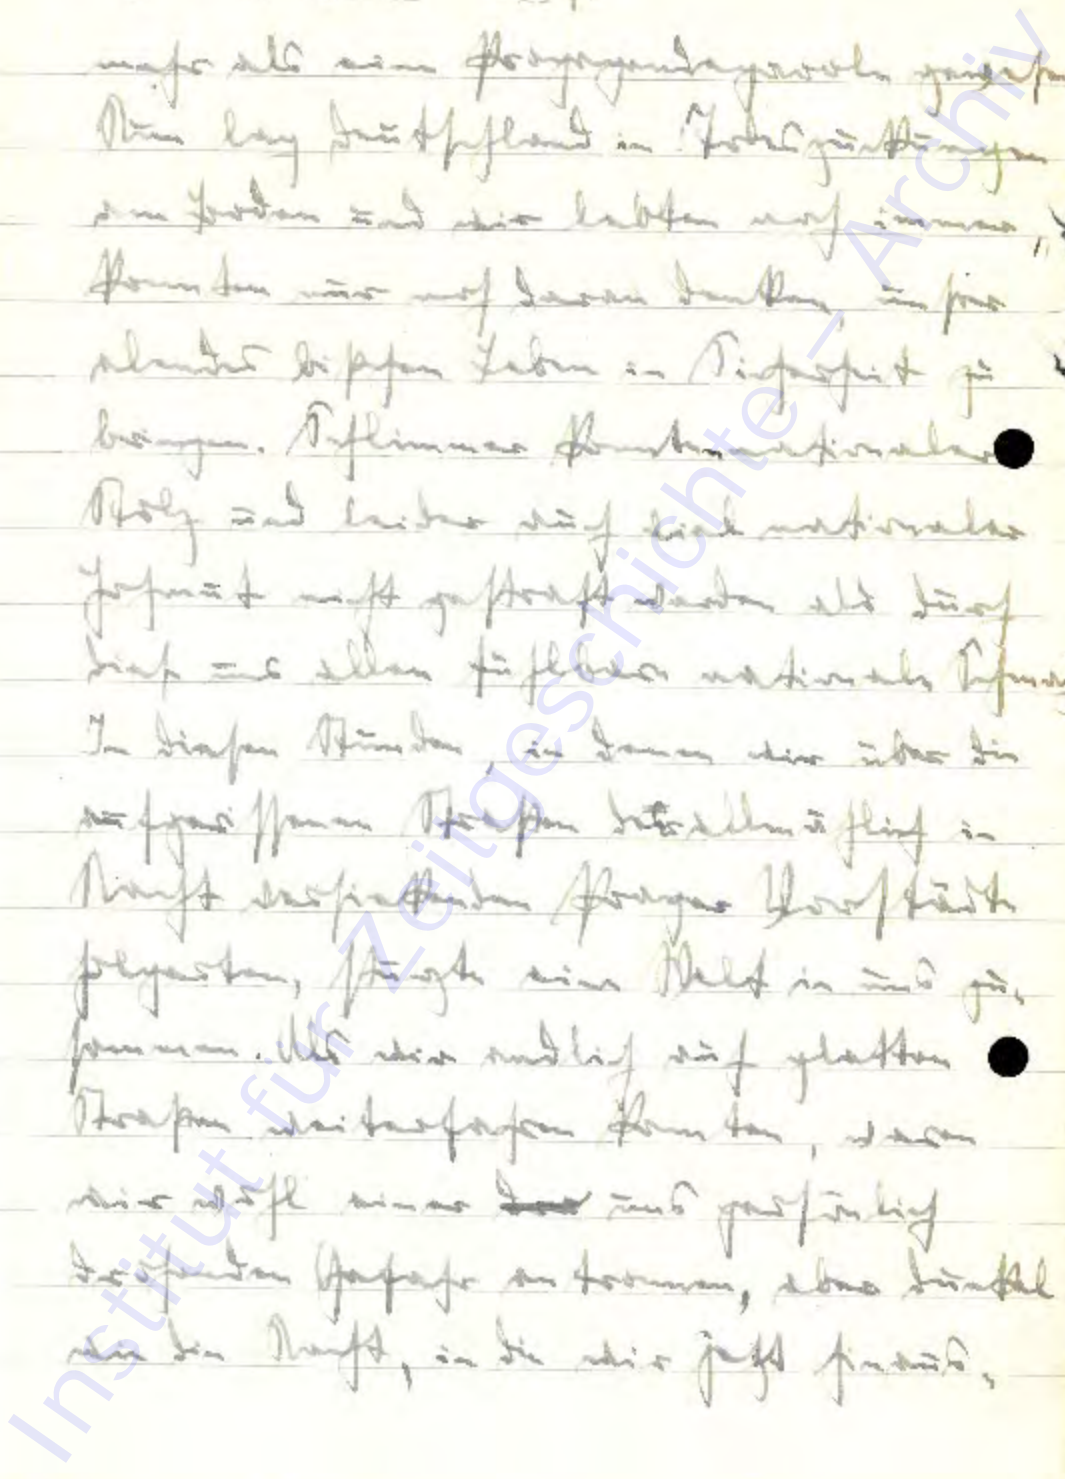 mehr als eine Propagandaparole gewesen
Nun lag Deutschland in Todeszuckungen
am Boden und wir lebten noch immer,
konnten nur noch daran denken, unser
elendes bißchen Leben in Sicherheit zu
bringen. Schlimmer konnte nationaler
Stolz und leider auch viel nationaler
Hochmut nicht gestraft werden als durch
diese uns allen fühlbare nationale
In diesen Stunden, in denen wir über die
aufgerissenen Straßen der allmählich in
Nacht versinkenden Prager Vorstädte
holperten, stürzte eine Welt in uns zu-
sammen. Als wir endlich auf glatten
Straßen weiterfahren konnten, waren
wir wohl einer uns persönlich
drohenden Gefahr entronnen, aber dunkel
wie die Nacht, in die wir jetzt hinaus-
Institut für Zeitgeschichte – Archiv